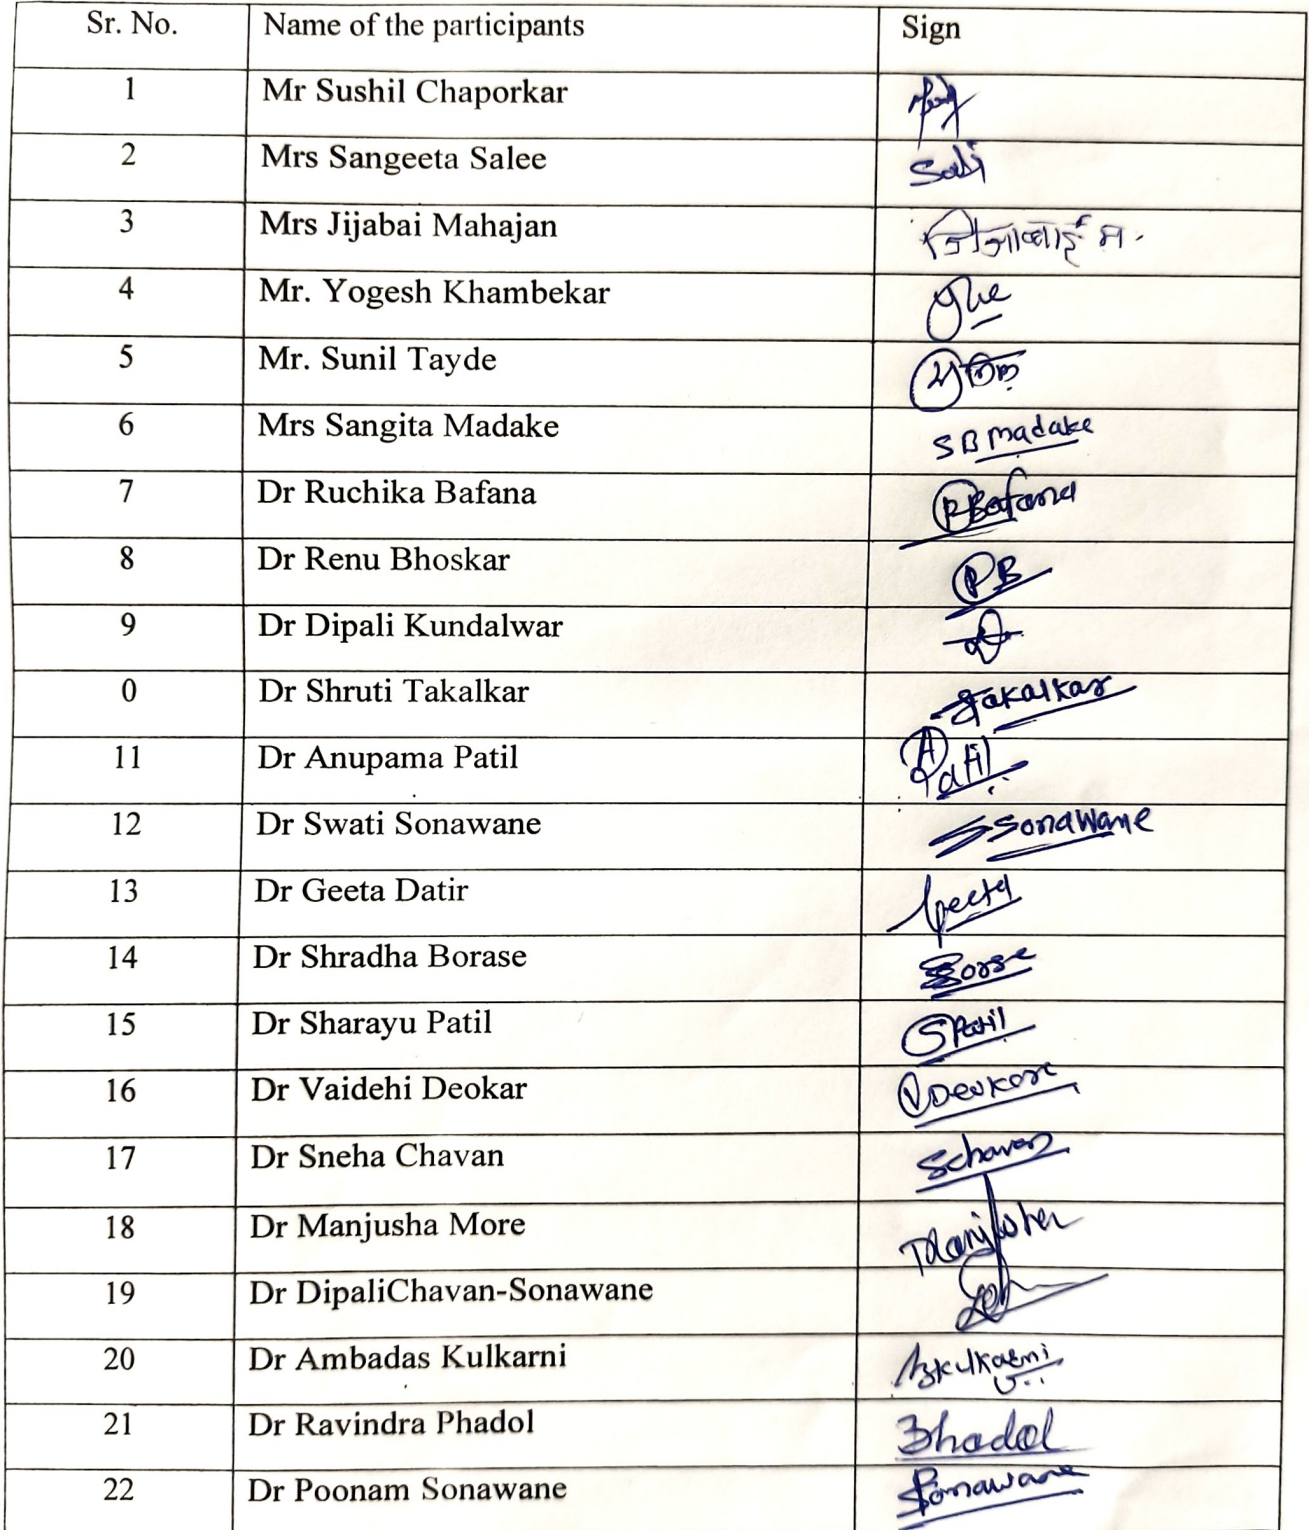 Sr. No. Name of the participants Sign
1 Mr Sushil Chaporkar
2 Mrs Sangeeta Salee Sali
3 Mrs Jijabai Mahajan जिजाबाई म.
4 Mr. Yogesh Khambekar
5 Mr. Sunil Tayde
6 Mrs Sangita Madake S B Madake
7 Dr Ruchika Bafana RBafana
8 Dr Renu Bhoskar RB
9 Dr Dipali Kundalwar
0 Dr Shruti Takalkar Takalkar
11 Dr Anupama Patil A Patil
12 Dr Swati Sonawane SSonawane
13 Dr Geeta Datir Geeta
14 Dr Shradha Borase Borse
15 Dr Sharayu Patil SPatil
16 Dr Vaidehi Deokar VDeokar
17 Dr Sneha Chavan SChavan
18 Dr Manjusha More
19 Dr DipaliChavan-Sonawane
20 Dr Ambadas Kulkarni Kulkarni
21 Dr Ravindra Phadol
22 Dr Poonam Sonawane Sonawane